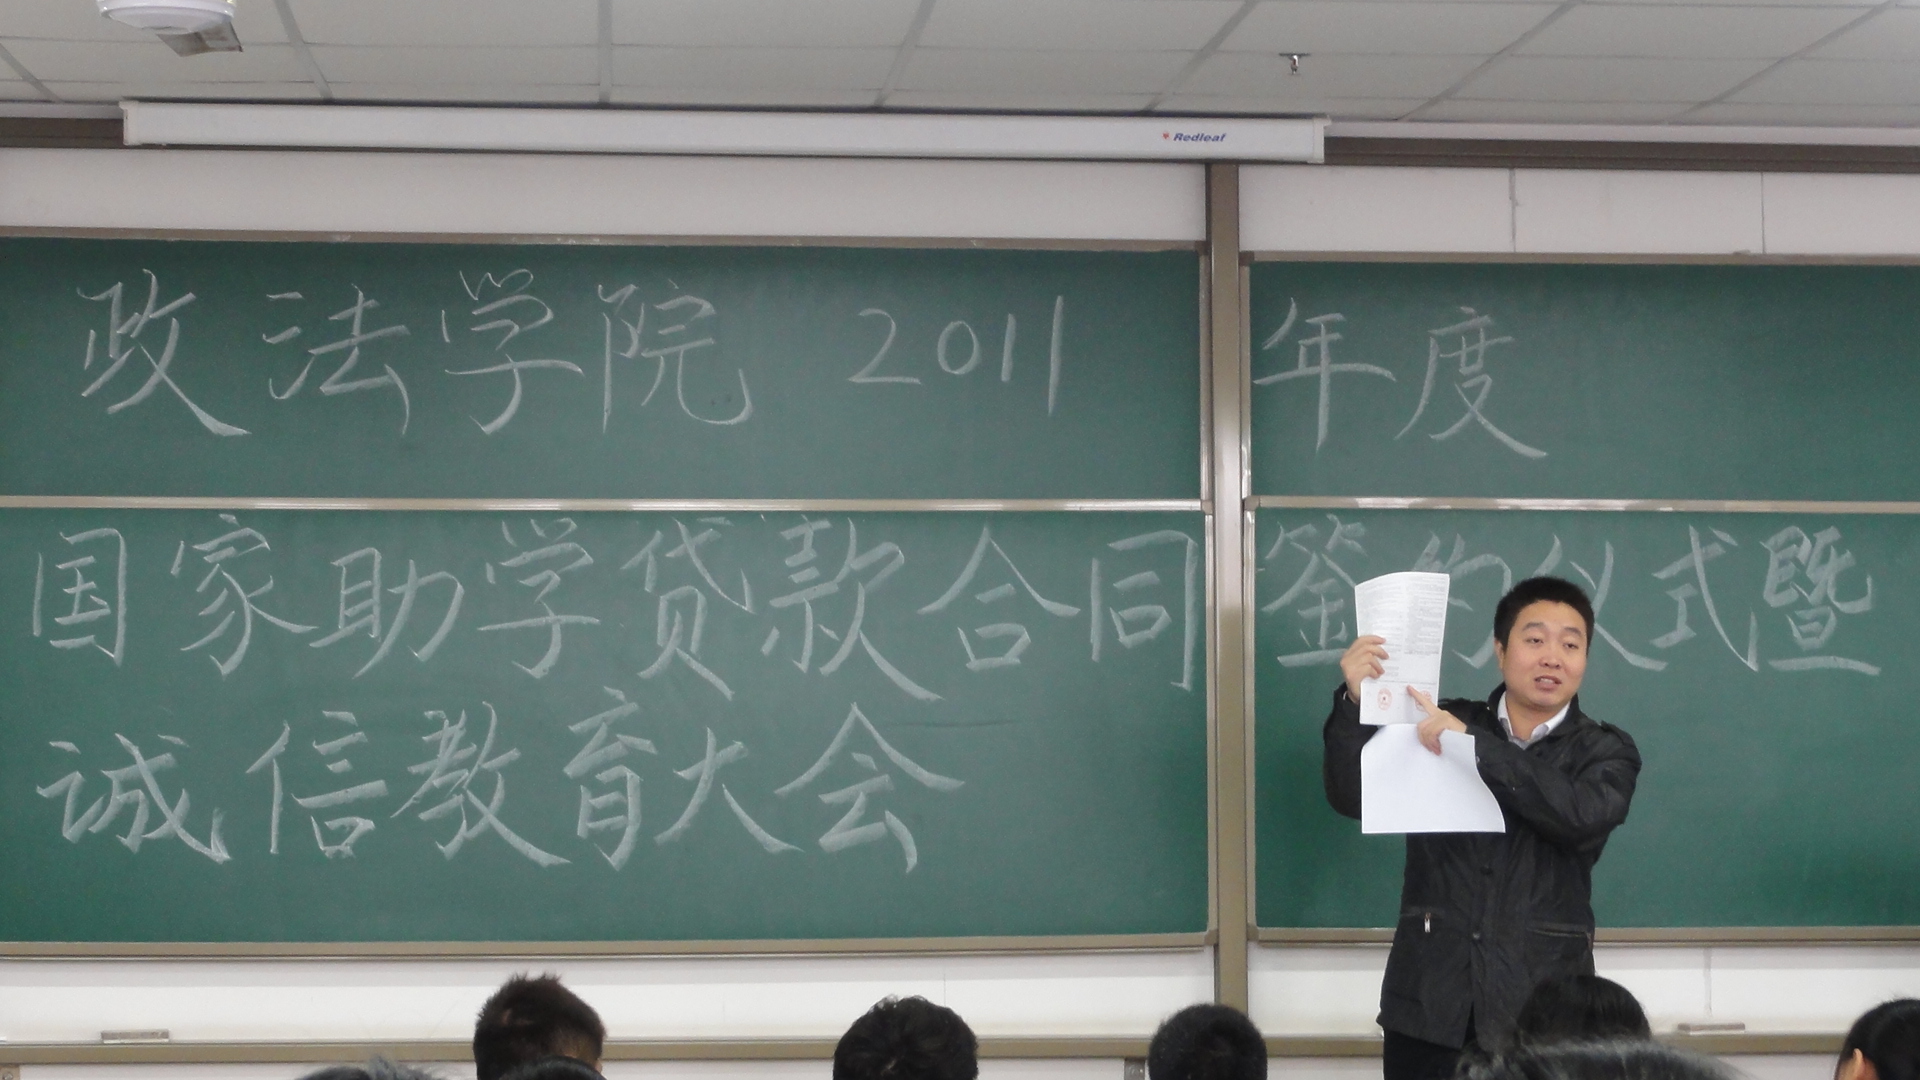 Redleaf
政法学院 2011年度
国家助学贷款合同签约仪式暨
诚信教育大会